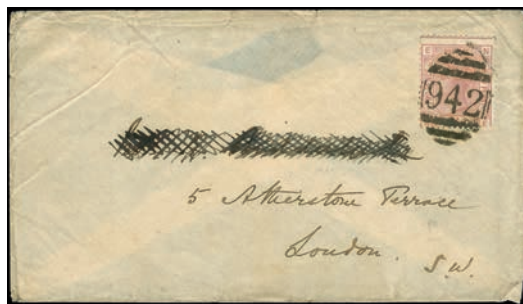 E N
942
5 Atherstone Terrace
London.
S.W.